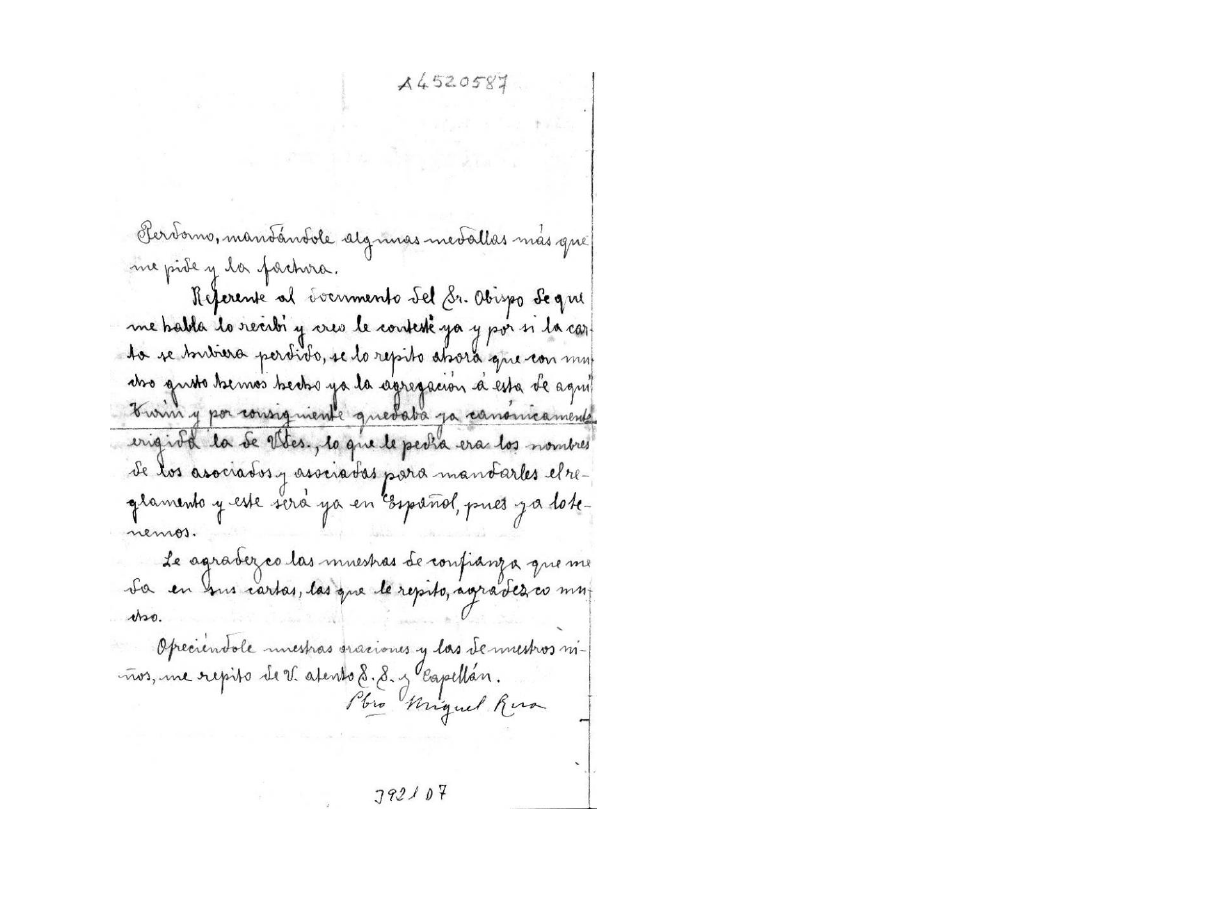 A4520587
Perdomo, mandándole algunas medallas más que
me pide y la factura.
Referente al documento del Sr. Obispo de que
me habla lo recibí y creo le contesté ya y por si la car-
ta se hubiera perdido, se lo repito ahora que con mu-
cho gusto hemos hecho ya la agregación á esta de aquí
Turín y por consiguiente quedaba ya canónicamente
erigida la de Vdes., lo que le pedía era los nombres
de los asociados y asociadas para mandarles el re-
glamento y este será ya en Español, pues ya lo te-
nemos.
Le agradezco las muestras de confianza que me
da en sus cartas, las que le repito, agradezco mu-
cho.
Ofreciéndole nuestras oraciones y las de nuestros ni-
ños, me repito de V. atento S. S. y Capellán.
Pbro Miguel Rua
3921 D7